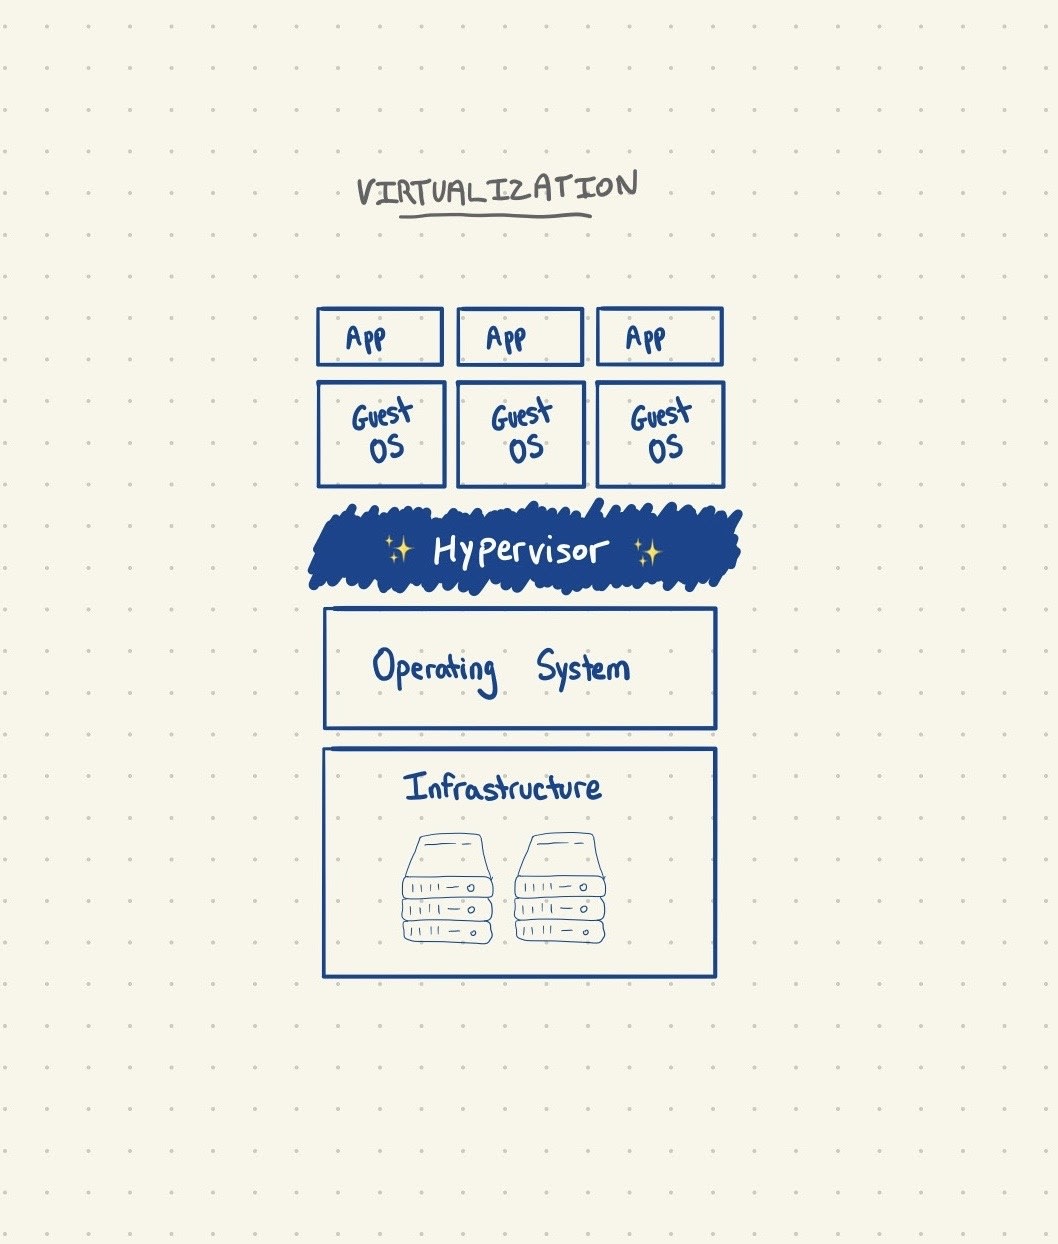 VIRTUALIZATION
App App App
Guest Guest Guest
OS OS OS
✨ Hypervisor ✨
Operating System
Infrastructure